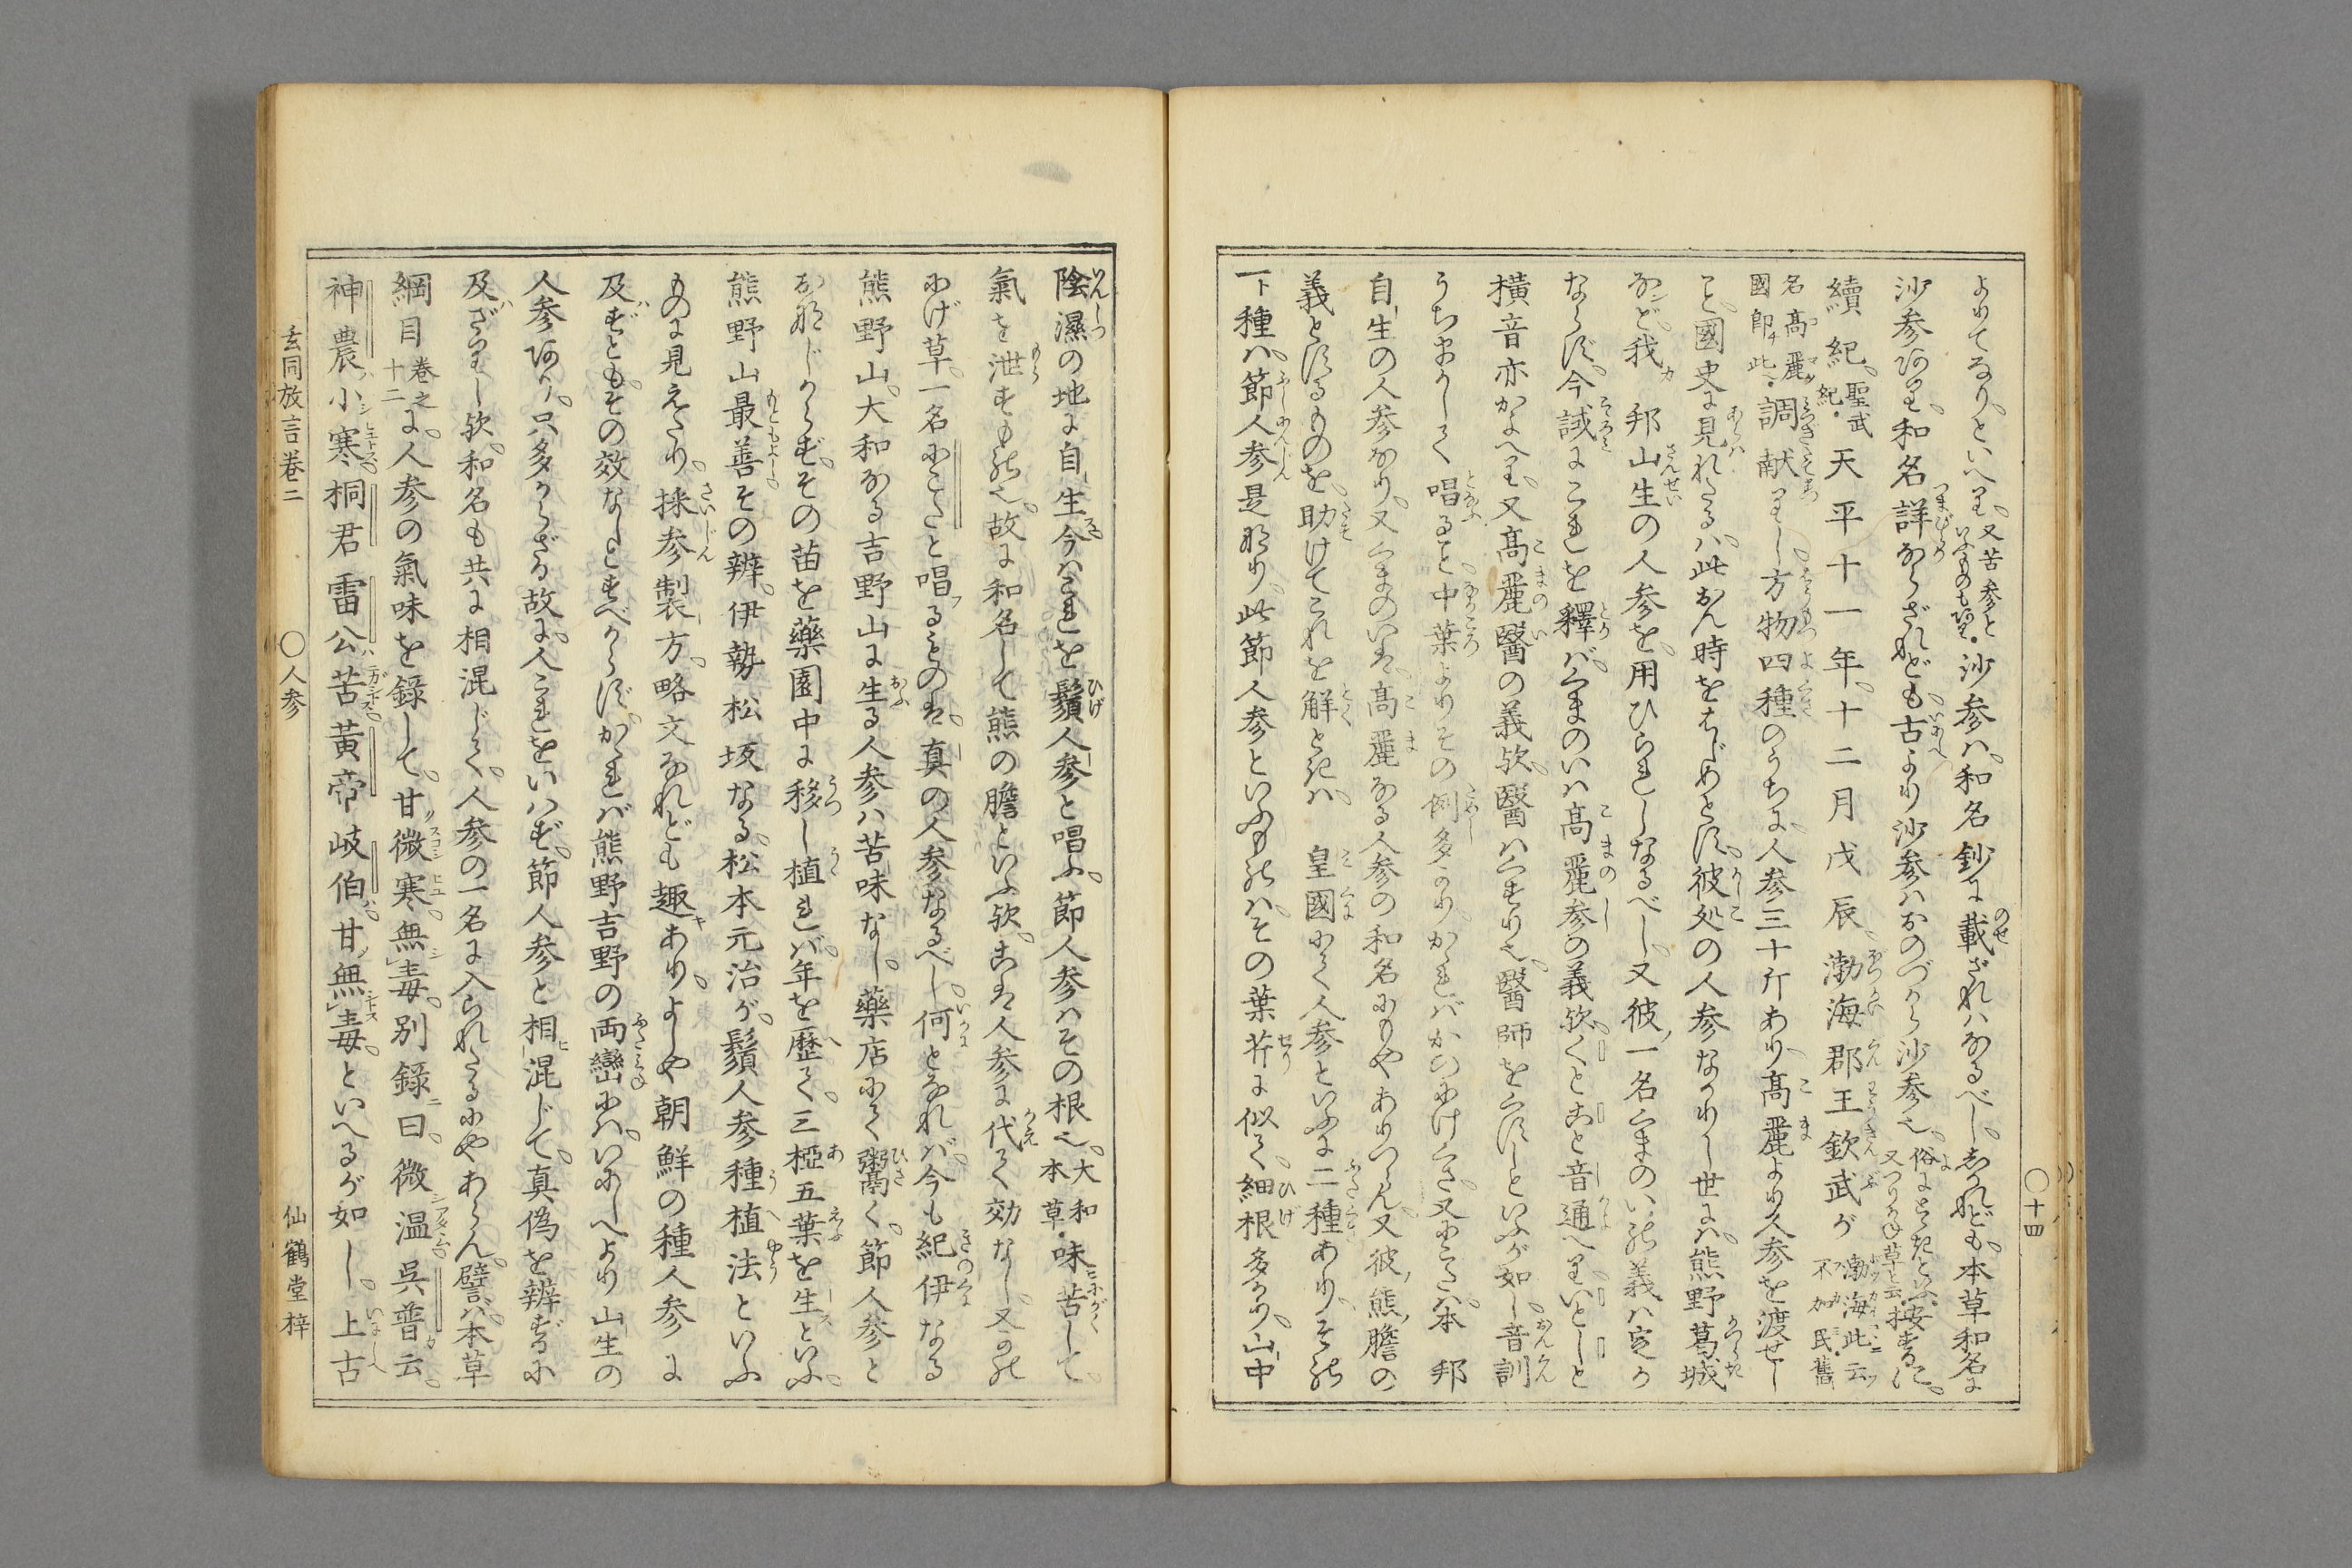 よりてなり。といへり。又苦参と
いふものも あり。沙参ハ。和名鈔に載ざれハなるべし。しかれども。本草和名に
沙参あり。和名詳ならざれども。古より沙参ハおのづから沙参也。俗に
又つりがね草と云。按ずるに。
續紀。聖武
紀。天平十一年。十二月戊辰。渤海郡王欽武が 渤海此云
不加民。舊
名高麗
國即此。調献りし。方物四種のうちに。人参三十斤あり。高麗より人参を渡せし
こと。國史に見れたるハ。此おん時をはじめとす。彼処の人参なかりし世にハ。熊野葛城
など。我 邦山生の人参を。用ひられしなるべし。又彼一名くまのいの義ハ定か
ならず。今試にこれを釋バ。くまのいハ高麗参の義欤。くとこと音通へり。いとしと
横音亦かよへり。又高麗醫の義欤。醫ハくすり也。醫師をくすしといふが如し。音訓
うちまかして唱ること。中葉よりその例多かり。かゝれバかのにげくさ。又にこたハ。本邦
自生の人参なり。又くまのいは。高麗なる人参の和名にもやありつらん。又彼熊膽の
義とするものを。助けてこれを解ときハ。 皇國にて人参といふに二種あり。その
一ト種ハ。節人参是なり。此節人参といふものハ。その葉芹に似て。細根多かり。山中
〇十四
陰濕の地に自生。今ハこれを鬚人参と唱ふ。節人参ハその根也。大和
本草。味苦して。
氣を泄すもの也。故に和名して熊の膽といふ欤。こは人参に代て効なし。又かの
にげ草。一名にこたと唱るものは。真の人参なるべし。何となれバ。今も紀伊なる
熊野山。大和なる吉野山に生る人参ハ苦味なし。藥店にて鬻く。節人参と
おなじからず。その苗を藥園中に移し植れバ。年を歴て。三椏五葉を生といふ。
熊野山最善その辨。伊勢松坂なる。松本元治が。鬚人参種植法といふ
ものに見えたり。採参製方。略文なれども趣あり。よしや朝鮮の種人参に
及ずとも。その效なしとすべからず。かゝれバ熊野吉野の両巒にハ。いにしへより山生の
人参あり。只多からざる故に。人これをいはず。節人参と相混じて。真偽を辨ずるに
及ざりし欤。和名も共に相混じて。人参の一名に入られたるにやあらん。譬バ。本草
綱目 巻之
十二 に。人参の氣味を録して。甘微寒。無毒。別録曰。微温。呉普云。
神農小寒。桐君雷公苦。黄帝岐伯甘無毒。といへるが如し。上古
玄同放言巻二 〇人参 仙鶴堂梓